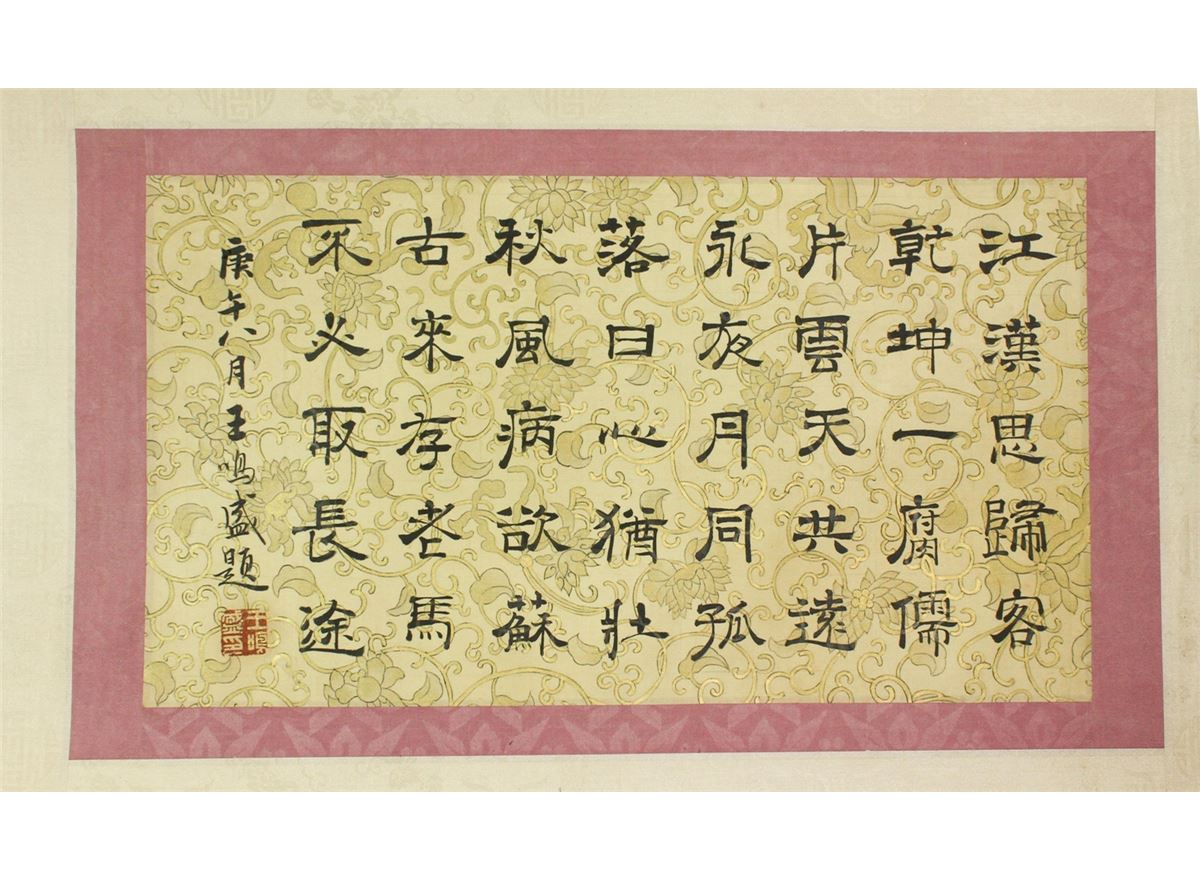 江漢思歸客
乾坤一腐儒
片雲天共遠
永夜月同孤
落日心猶壯
秋風病欲蘇
古來存老馬
不必取長途
庚午八月王鳴盛題
王鳴盛印